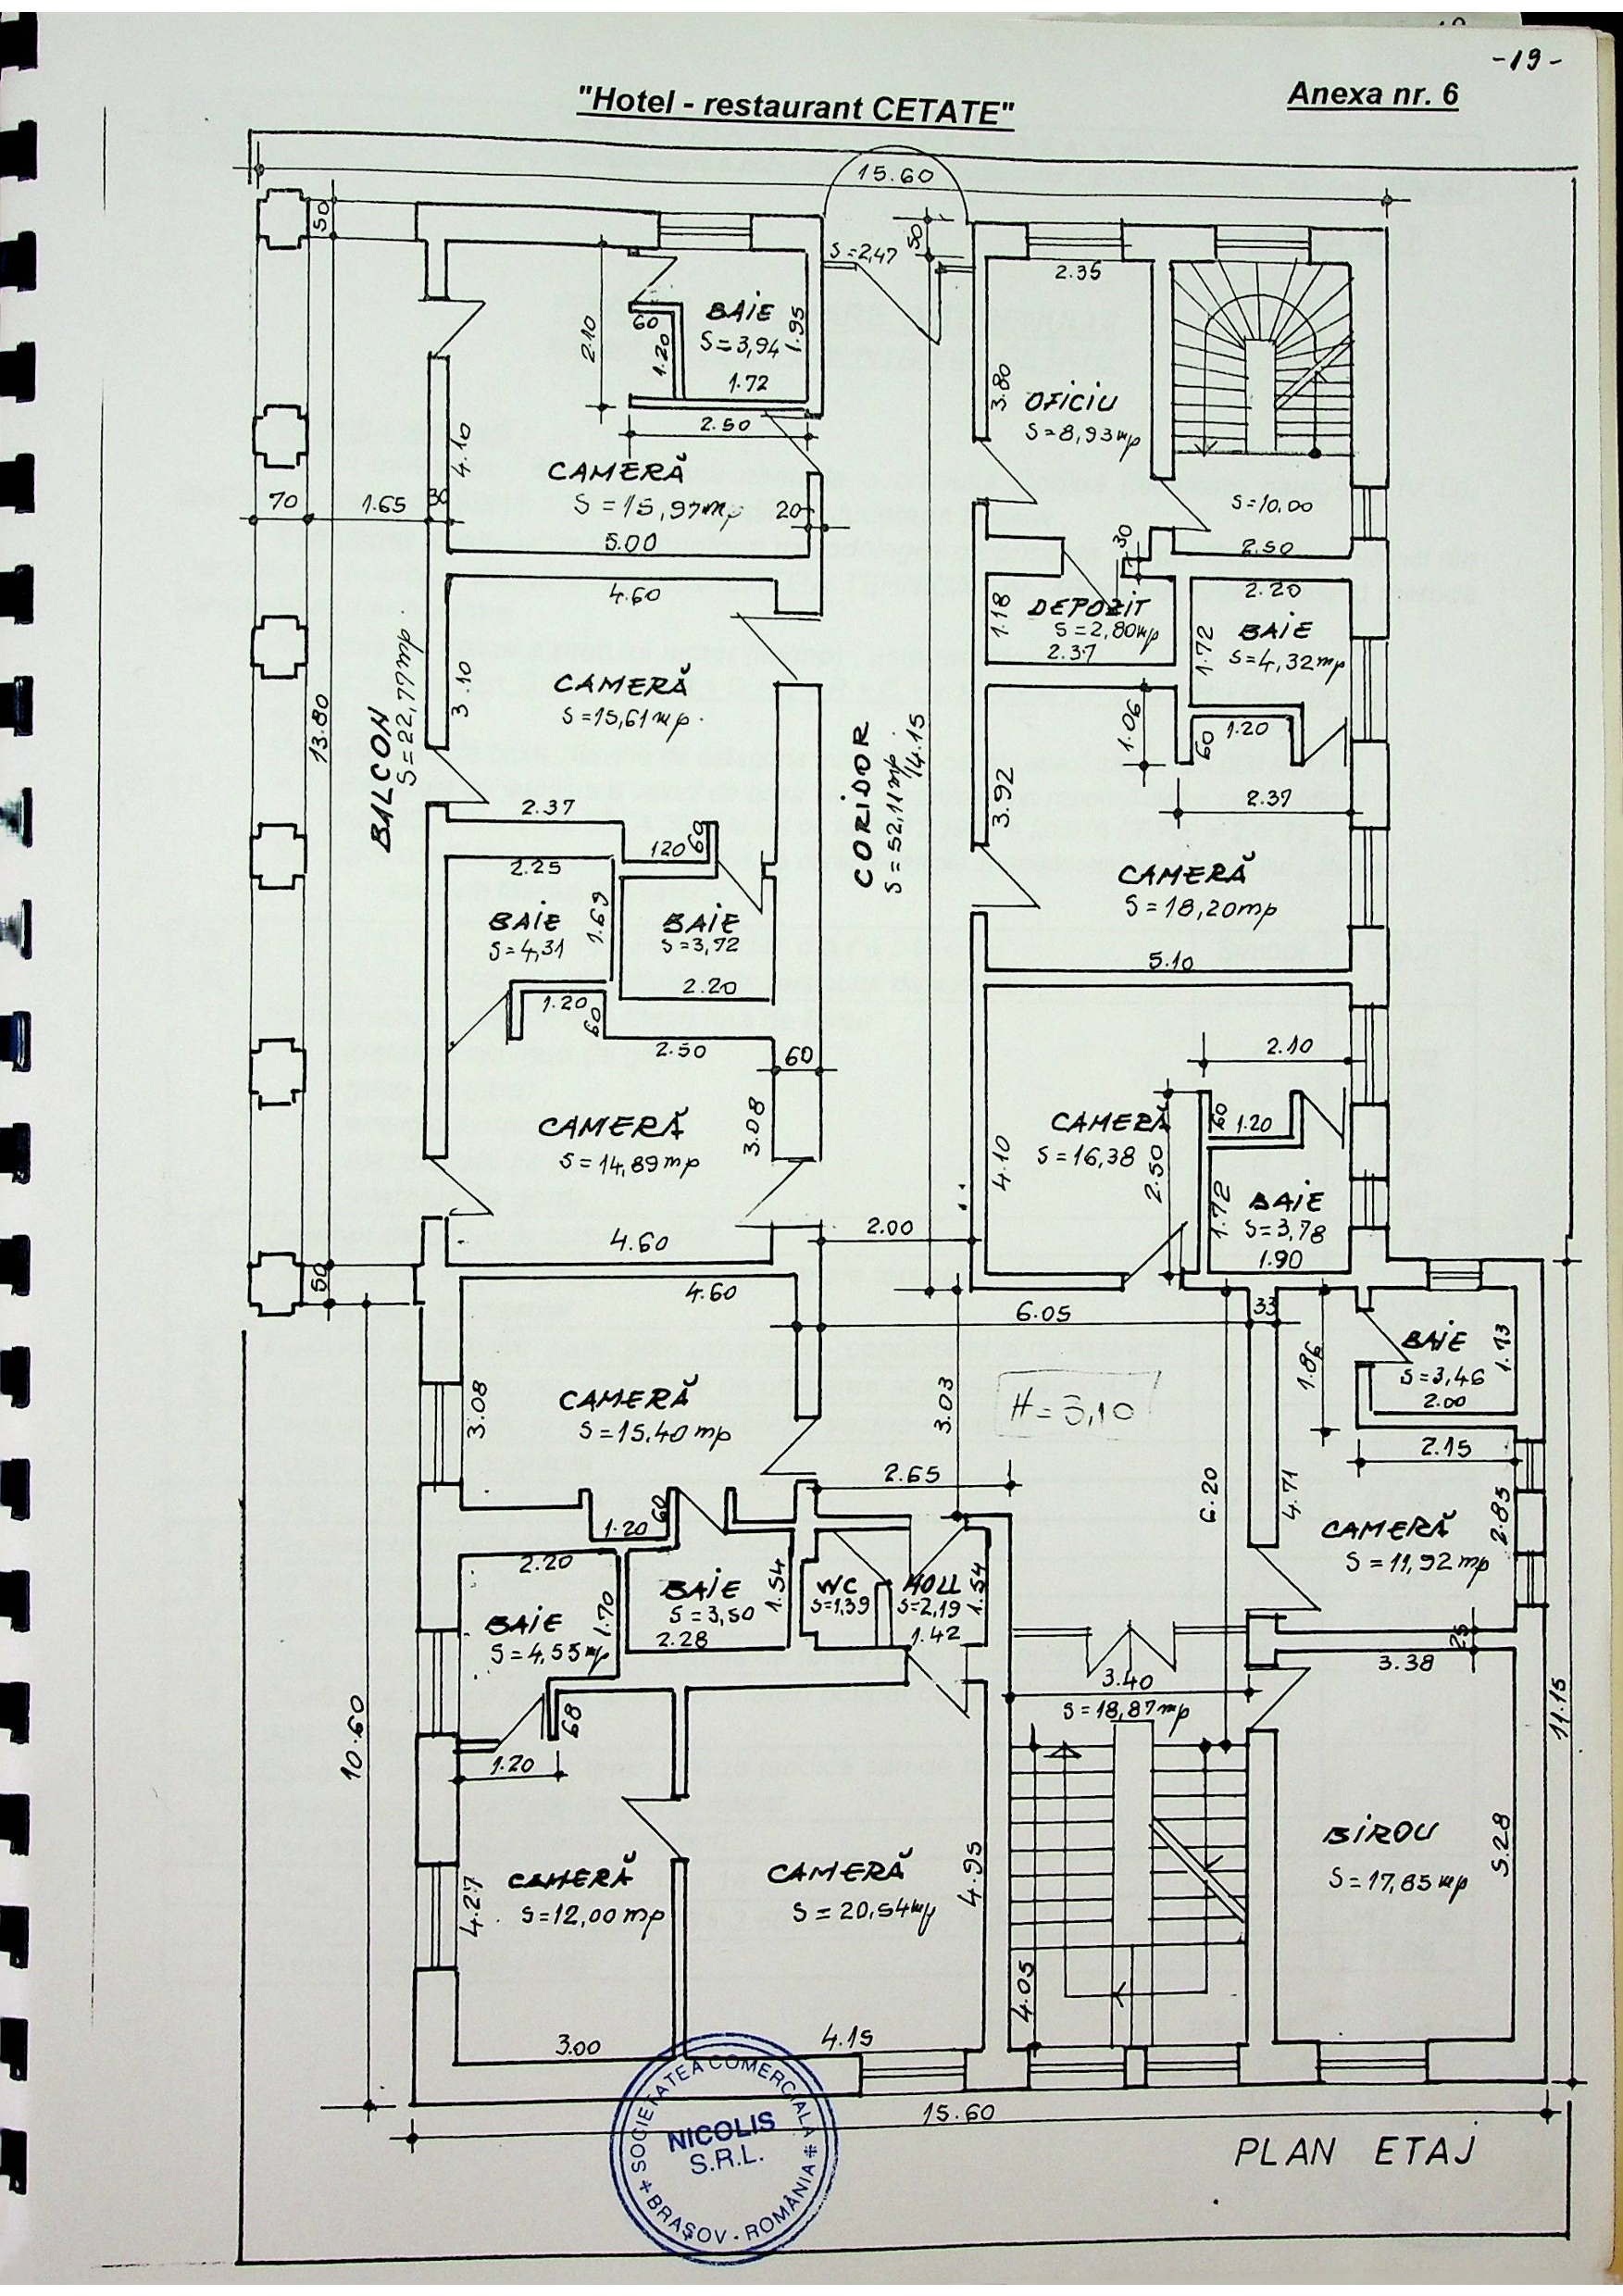 -19-
"Hotel - restaurant CETATE"
Anexa nr. 6
15.60
50
S=2,47
50
2.35
2.10
60
1.20
BAIE
S=3,94
1.95
1.72
2.50
4.10
CAMERĂ
S=15,97mp
5.00
20
3.80
OFICIU
S=8,93mp
S=10,00
2.50
30
70
1.65
30
4.60
3.10
CAMERĂ
S=15,61mp.
2.37
120
60
1.18
DEPOZIT
S=2,80mp
2.37
2.20
BAIE
S=4,32mp
1.72
1.20
60
1.06
2.37
BALCON
S=22,77mp
13.80
CORIDOR
S=52,11mp
14.15
3.92
CAMERĂ
S=18,20mp
5.10
2.25
BAIE
S=4,31
1.69
BAIE
S=3,72
2.20
1.20
60
2.50
60
CAMERĂ
S=14,89mp
3.08
4.60
2.00
2.10
60
1.20
CAMERĂ
S=16,38
4.10
2.50
1.72
BAIE
S=3,78
1.90
50
4.60
6.05
33
CAMERĂ
S=15,40mp
3.08
3.03
H=3,10
1.86
BAIE
S=3,46
2.00
1.73
2.15
2.65
6.20
4.71
CAMERĂ
S=11,92mp
2.85
1.20
60
2.20
BAIE
S=4,55mp
1.70
BAIE
S=3,50
2.28
1.54
WC
S=1,39
HOLL
S=2,19
1.42
1.54
25
3.38
3.40
S=18,87mp
68
1.20
10.60
11.15
CAMERĂ
S=12,00mp
4.27
3.00
CAMERĂ
S=20,54mp
4.95
4.15
4.05
BIROU
S=17,85mp
5.28
15.60
PLAN ETAJ
SOCIETATEA COMERCIALĂ
NICOLIS
S.R.L.
BRAȘOV - ROMÂNIA